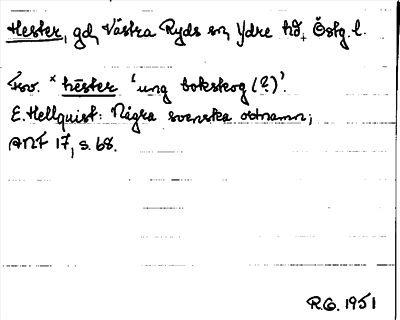 Hester, gd, Västra Ryds sn, Ydre hd, Östg. l.
Fsv. *hēster 'ung bokskog (?)'.
E. Hellquist: Några svenska ortnamn;
ANF 17, s. 68.
R.G. 1951